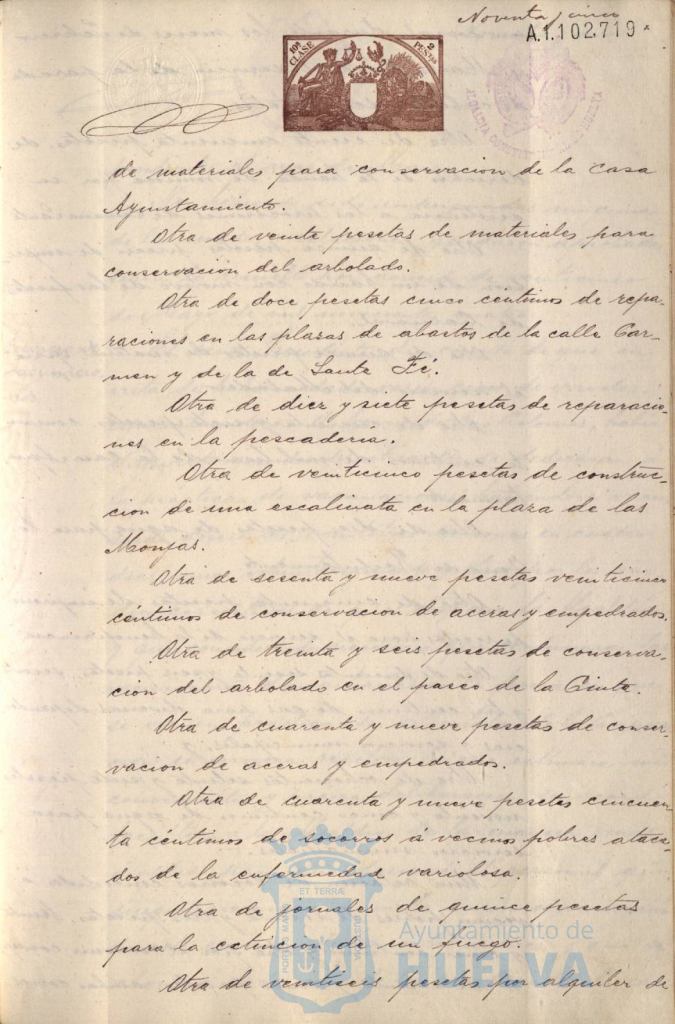 Noventa y cinco
A.1.102.719
10ª CLASE
2 PESETAS
de materiales para conservacion de la Casa
Ayuntamiento.
Otra de veinte pesetas de materiales para
conservacion del arbolado.
Otra de doce pesetas cinco céntimos de repa-
raciones en las plazas de abastos de la calle Car-
men y de la de Santa Fé.
Otra de diez y siete pesetas de reparacio-
nes en la pescaderia.
Otra de veinticinco pesetas de construc-
cion de una escalinata en la plaza de las
Monjas.
Otra de sesenta y nueve pesetas veinticinco
céntimos de conservacion de aceras y empedrados.
Otra de treinta y seis pesetas de conserva-
cion del arbolado en el paseo de la Cinta.
Otra de cuarenta y nueve pesetas de conser-
vacion de aceras y empedrados.
Otra de cuarenta y nueve pesetas cincuen-
ta céntimos de socorros á vecinos pobres ataca-
dos de la enfermedad variolosa.
Otra de jornales de quince pesetas
para la extincion de un fuego.
Otra de veintiseis pesetas por alquiler de
ET TERRÆ
Ayuntamiento de
HUELVA